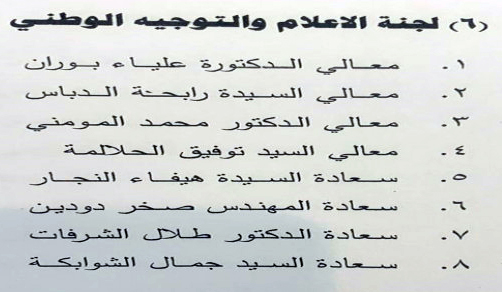 (٦) لجنة الاعلام والتوجيه الوطني
١. معالي الدكتورة علياء بوران
٢. معالي السيدة رابحة الدباس
٣. معالي الدكتور محمد المومني
٤. معالي السيد توفيق الحلالمة
٥. سعادة السيدة هيفاء النجار
٦. سعادة المهندس صخر دودين
٧. سعادة الدكتور طلال الشرفات
٨. سعادة السيد جمال الشوابكة